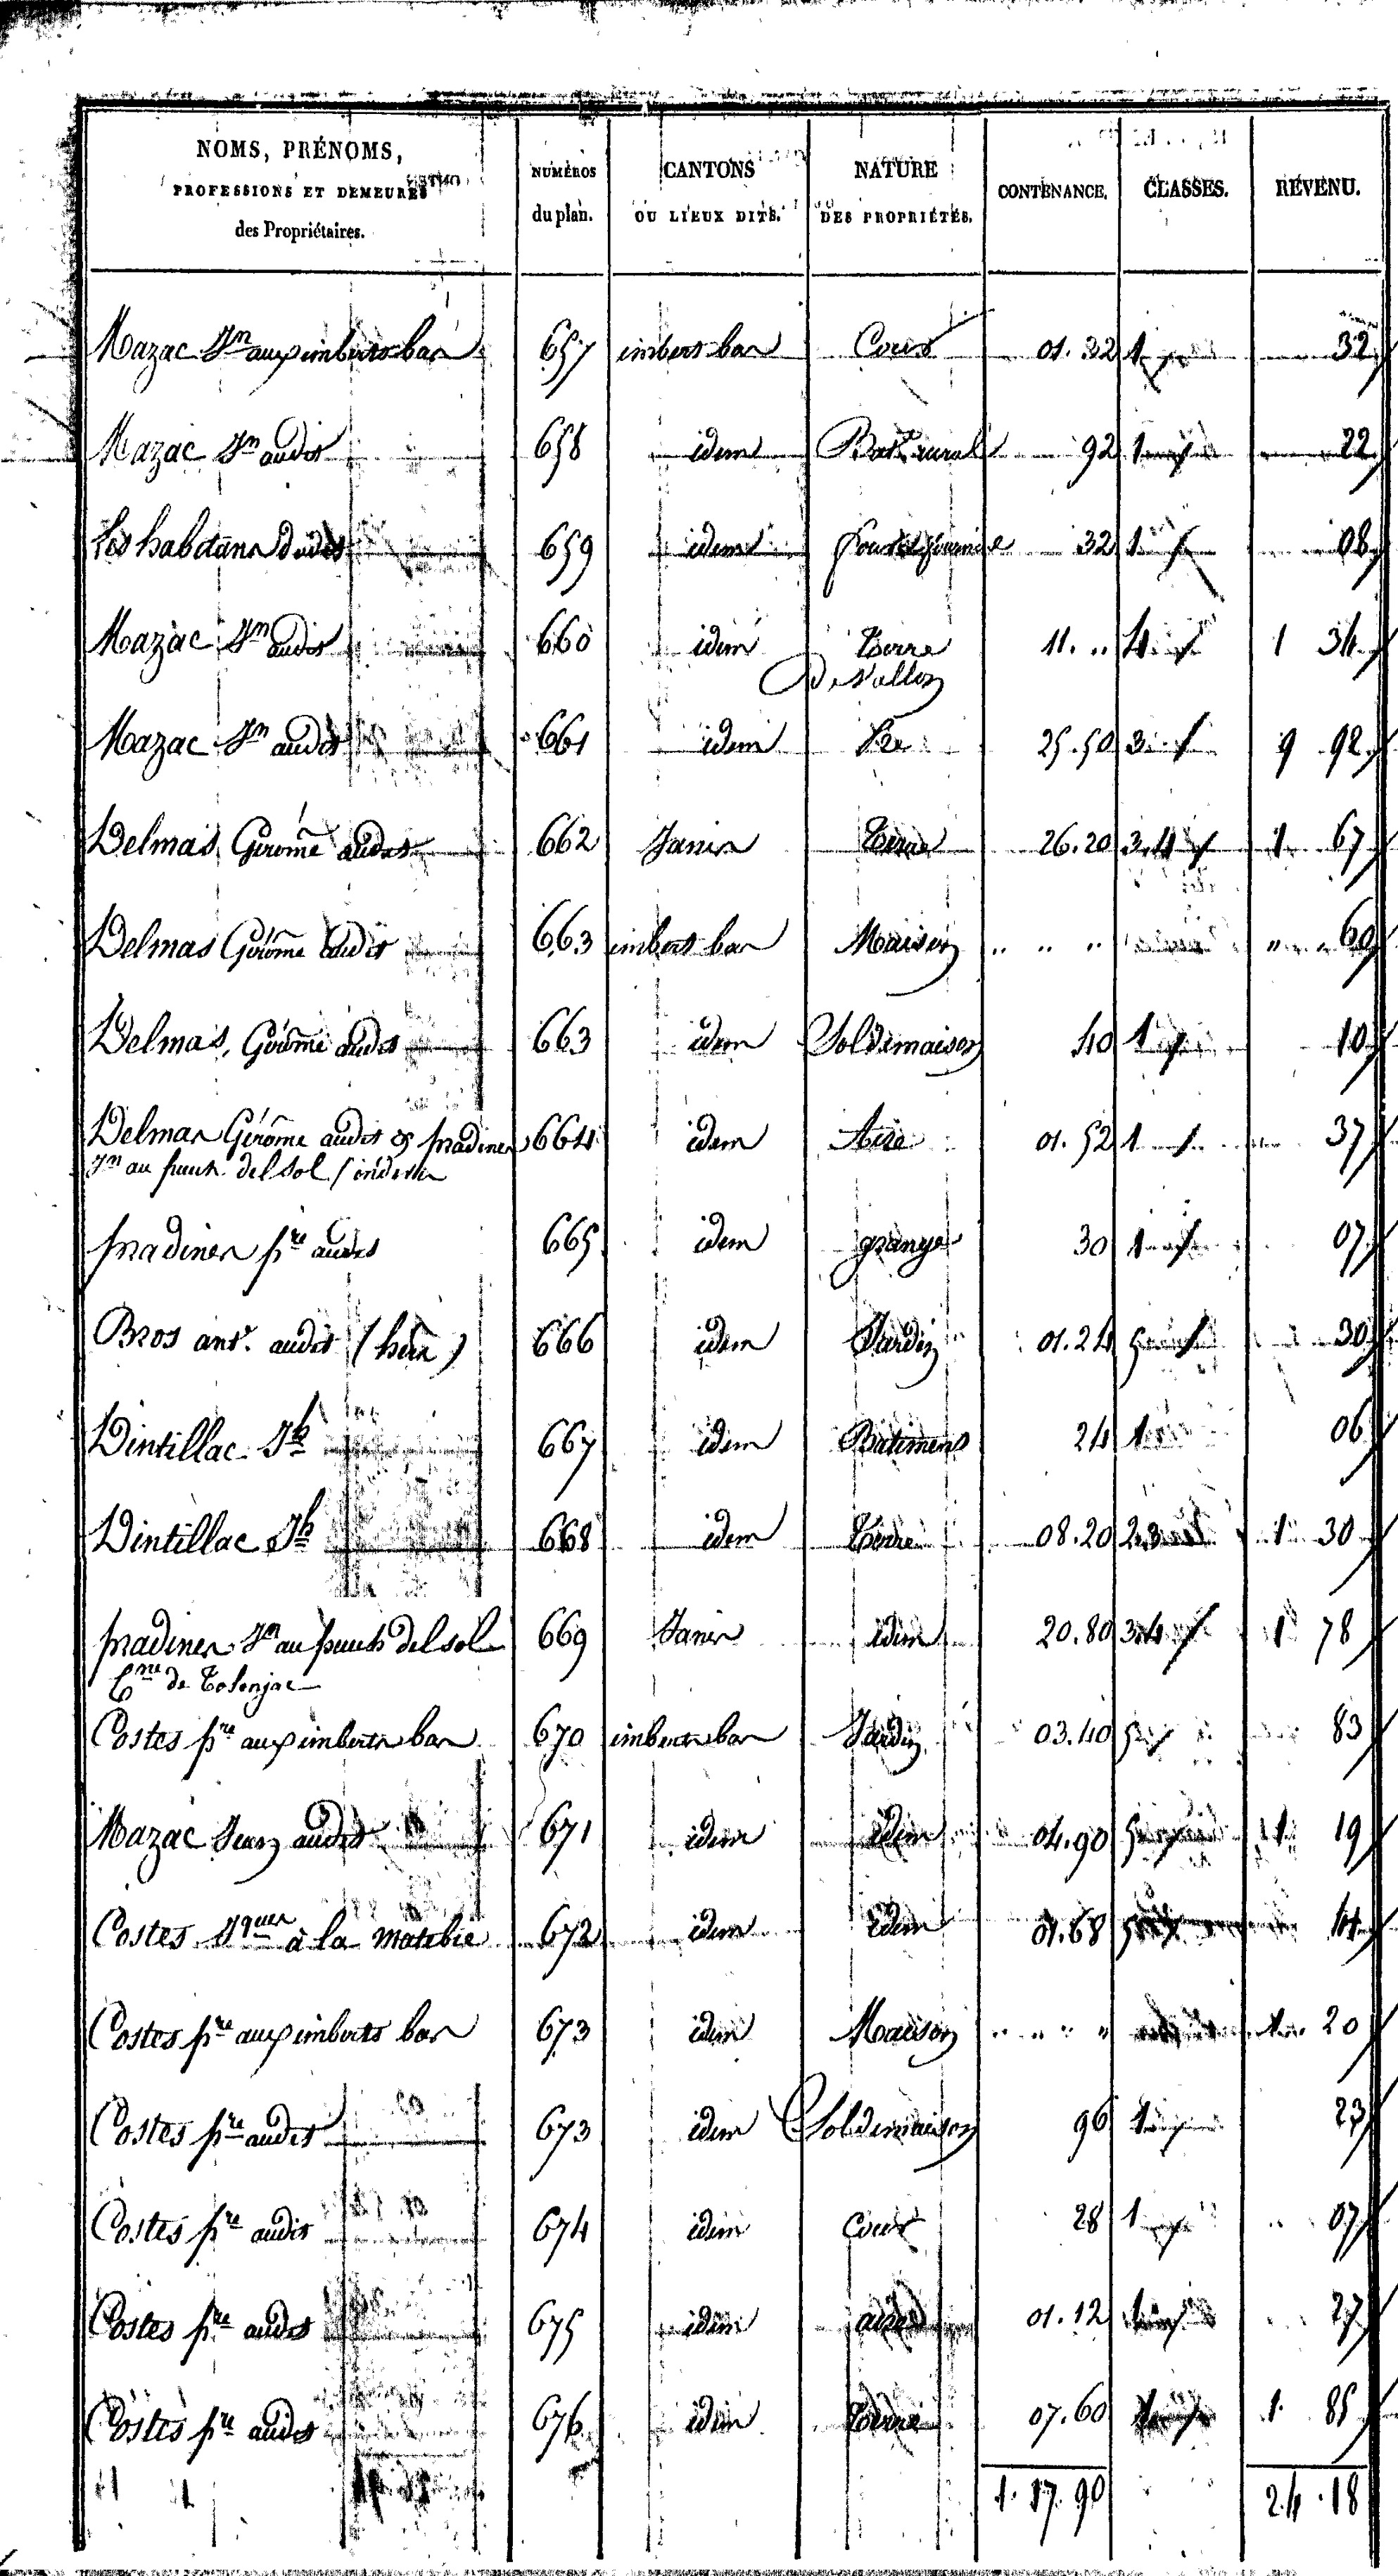 NOMS, PRÉNOMS, PROFESSIONS ET DEMEURES des Propriétaires. | NUMÉROS du plan. | CANTONS OU LIEUX DITS. | NATURE DES PROPRIÉTÉS. | CONTENANCE. | CLASSES. | REVENU.
Mazac Jn aux imberts bas 657 imberts bas Cour 01.32 1 32
Mazac Jn audit 658 idem Batt rural 92 1 22
Les habitans dudit 659 idem 32 1 08
Mazac Jn audit 660 idem Terre 11. .. 4 1 34
De Vallon
Mazac Jn audit 661 idem Pré 25.50 3 9 92
Delmas Gérôme audit 662 Janis Terre 26.20 3.4 1 67
Delmas Gérôme audit 663 imberts bas Maison .. .. .. " " 60
Delmas, Gérôme audit 663 idem Sol de maison 40 1 10
Delmas Gérôme audit et pradines 664 idem Aire 01.52 1 37
Jn au puech del sol / indivis
pradines pre audit 665 idem grange 30 1 07
Bros ant. audit (hérs) 666 idem Jardin 01.24 5 30
Dintillac Jh 667 idem Batimens 24 1 06
Dintillac Jh 668 idem Terre 08.20 2.3 1 30
pradines Jn au puech del sol 669 Janis idem 20.80 3.4 1 78
Cne de Tolonjac
Costes pre aux imberts bas 670 imberts bas Jardin 03.40 5 83
Mazac Jean audit 671 idem idem 04.90 5 1 19
Costes Jques à la matebie 672 idem idem 01.68 5 41
Costes pre aux imberts bas 673 idem Maison .. .. .. " 1 20
Costes pre audit 673 idem Sol de maison 96 1 23
Costes pre audit 674 idem Cour 28 1 07
Costes pre audit 675 idem aire 01.12 1 27
Costes pre audit 676 idem Terre 07.60 1 1 85
1.17.90 24.18